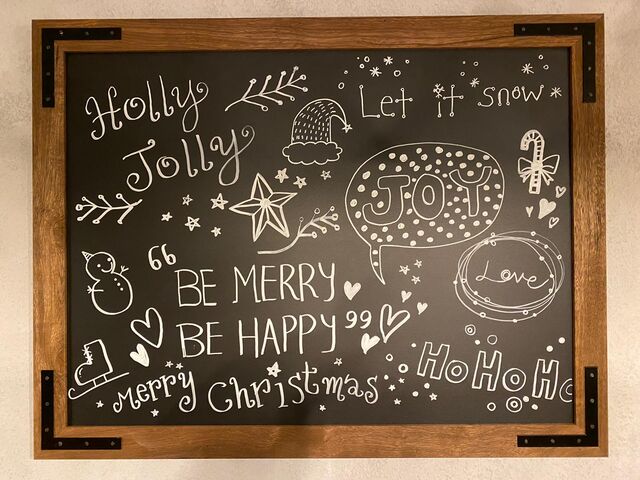 Holly
Jolly
Let it snow
JOY
Love
“BE MERRY
BE HAPPY”
Merry Christmas
HOHOHO